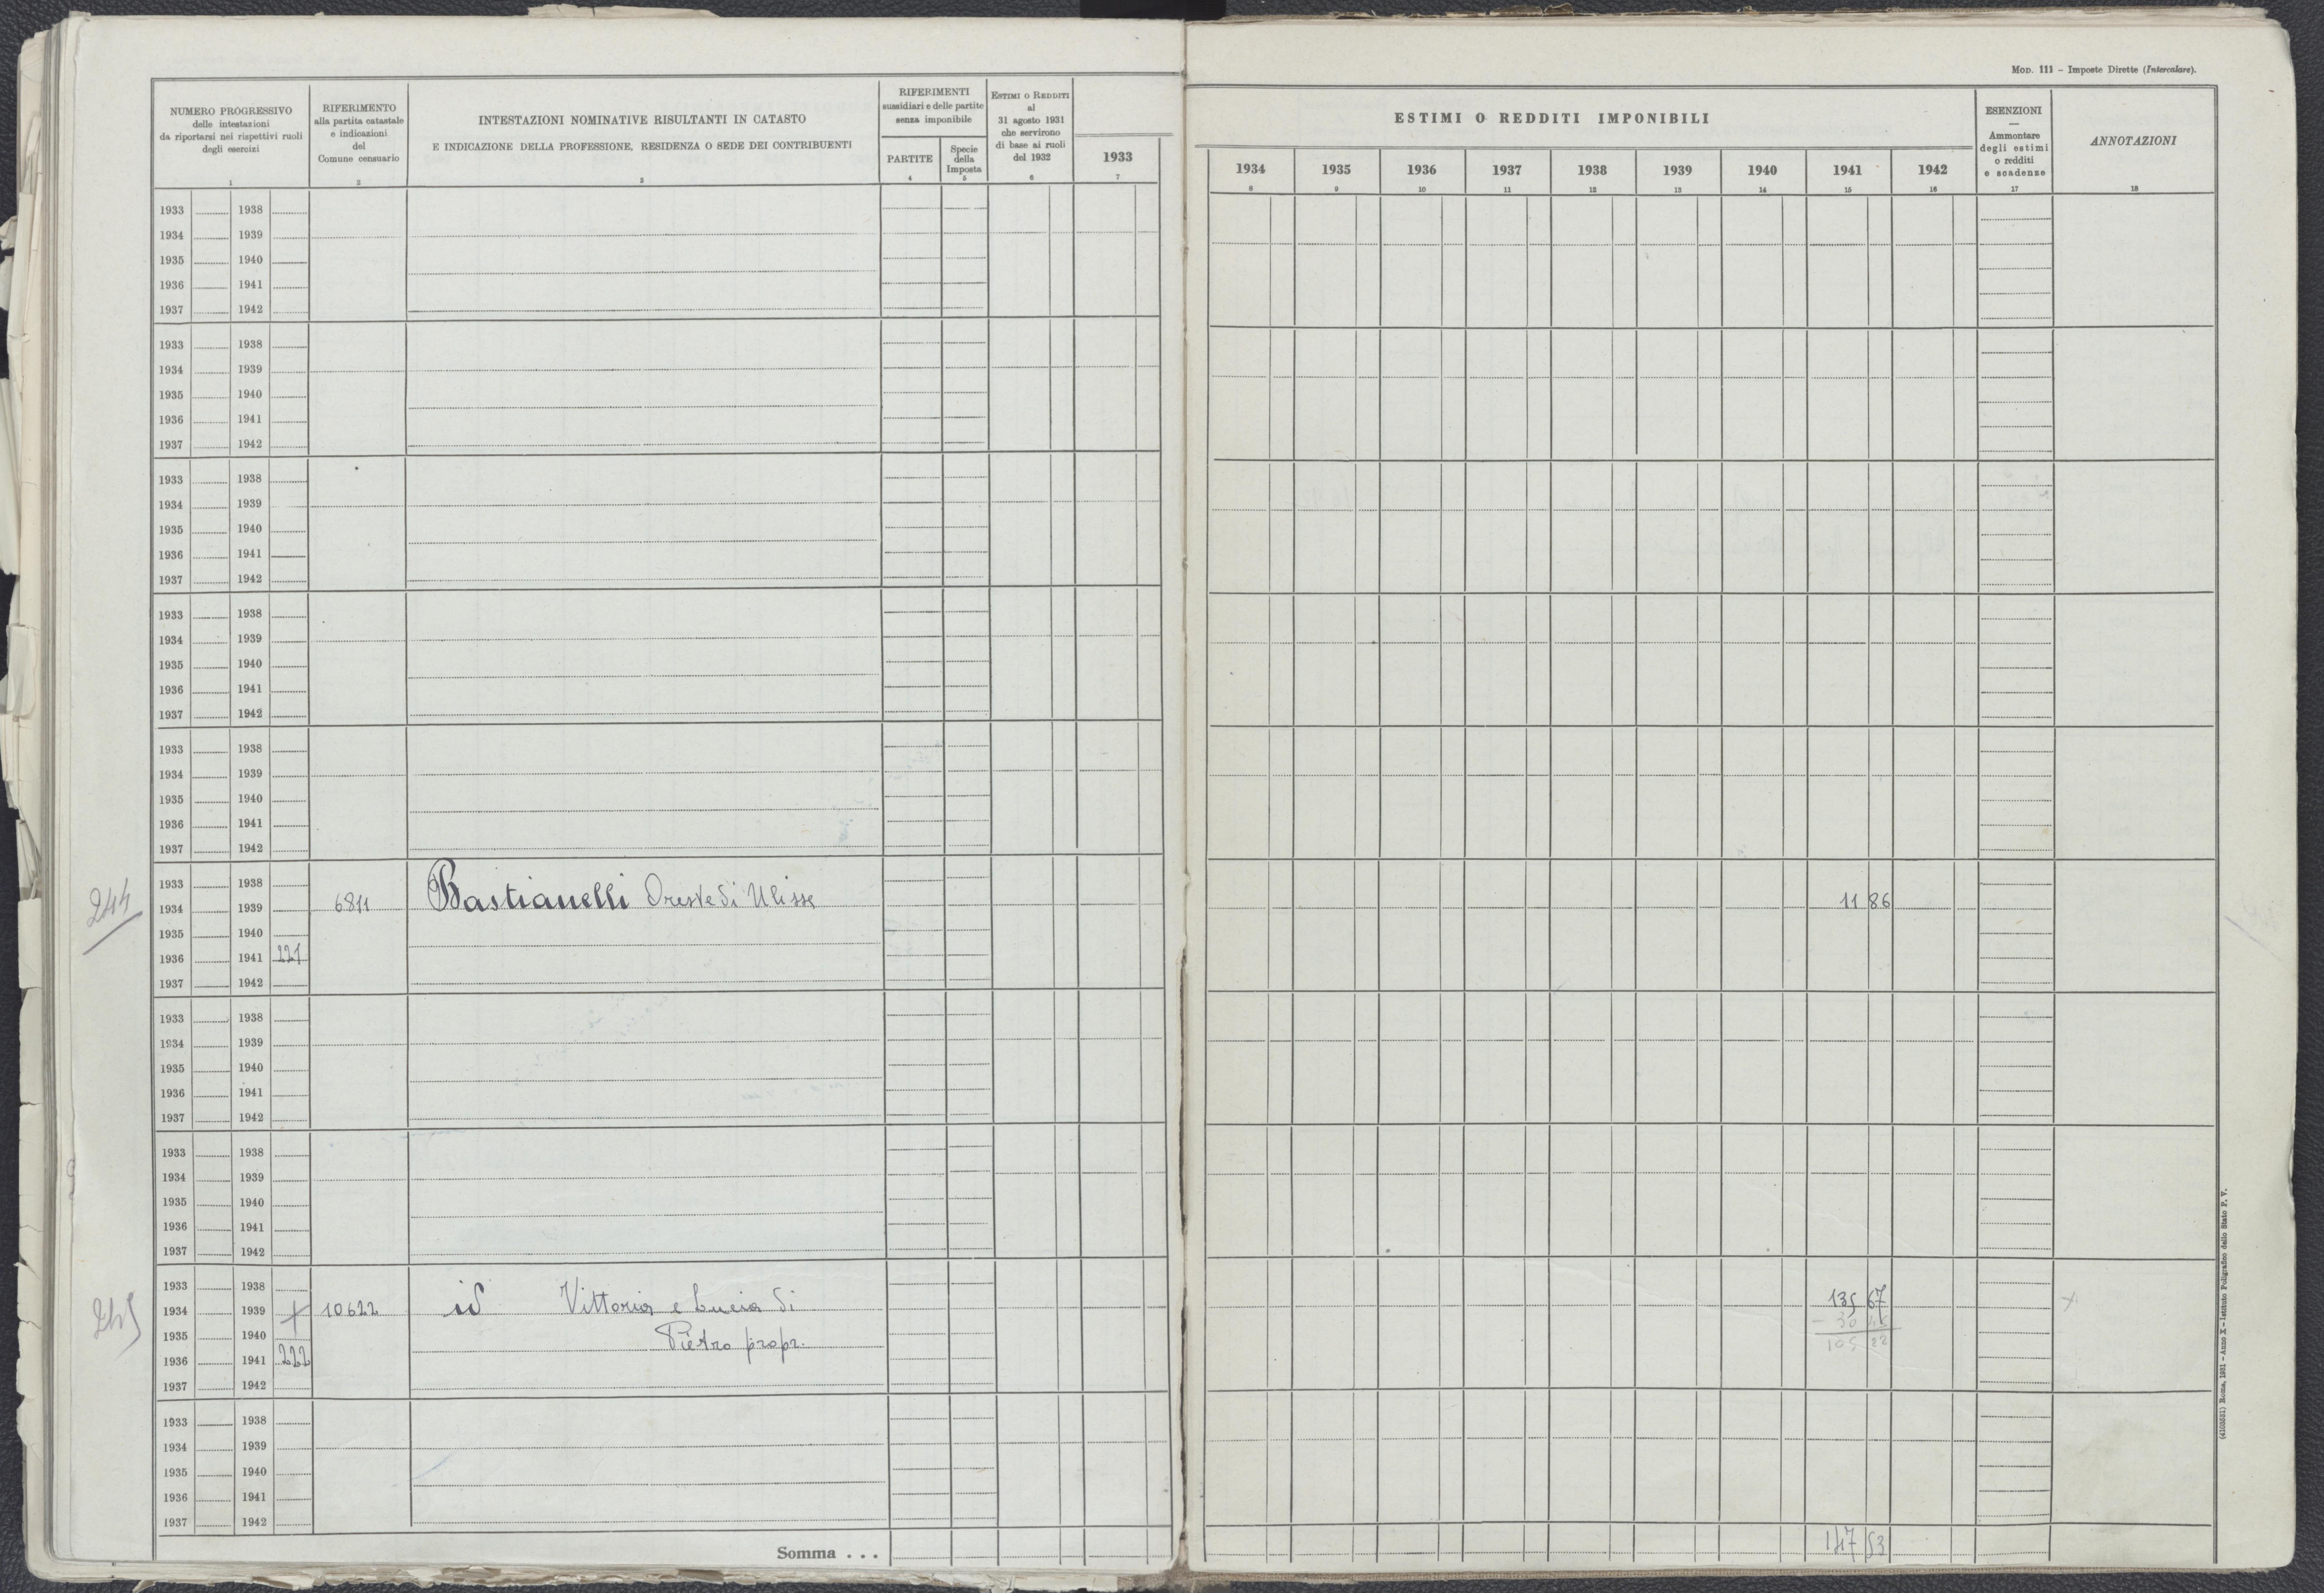 Mod. 111 – Imposte Dirette (Intercalare).
NUMERO PROGRESSIVO
delle intestazioni
da riportarsi nei rispettivi ruoli
degli esercizi
1
RIFERIMENTO
alla partita catastale
e indicazioni
del
Comune censuario
2
INTESTAZIONI NOMINATIVE RISULTANTI IN CATASTO
E INDICAZIONE DELLA PROFESSIONE, RESIDENZA O SEDE DEI CONTRIBUENTI
3
RIFERIMENTI
sussidiari e delle partite
senza imponibile
PARTITE
4
Specie
della
Imposta
5
Estimi o Redditi
al
31 agosto 1931
che servirono
di base ai ruoli
del 1932
6
1933
7
ESTIMI O REDDITI IMPONIBILI
1934 1935 1936 1937 1938 1939 1940 1941 1942
8 9 10 11 12 13 14 15 16
ESENZIONI
—
Ammontare
degli estimi
o redditi
e scadenze
17
ANNOTAZIONI
18
1933 1938
1934 1939
1935 1940
1936 1941
1937 1942
1933 1938
1934 1939
1935 1940
1936 1941
1937 1942
1933 1938
1934 1939
1935 1940
1936 1941
1937 1942
1933 1938
1934 1939
1935 1940
1936 1941
1937 1942
1933 1938
1934 1939
1935 1940
1936 1941
1937 1942
1933 1938
244 1934 1939 6811 Bastianelli Oreste di Ulisse 11 86
1935 1940
1936 1941 221
1937 1942
1933 1938
1934 1939
1935 1940
1936 1941
1937 1942
1933 1938
1934 1939
1935 1940
1936 1941
1937 1942
1933 1938
245 1934 1939 + 10622 id Vittoria e Lucia di 135 67 +
1935 1940 Pietro propr. – 30 45
1936 1941 222 105 22
1937 1942
1933 1938
1934 1939
1935 1940
1936 1941
1937 1942
Somma . . . 147 53
(4103551) Roma, 1931 – Anno X – Istituto Poligrafico dello Stato P. V.